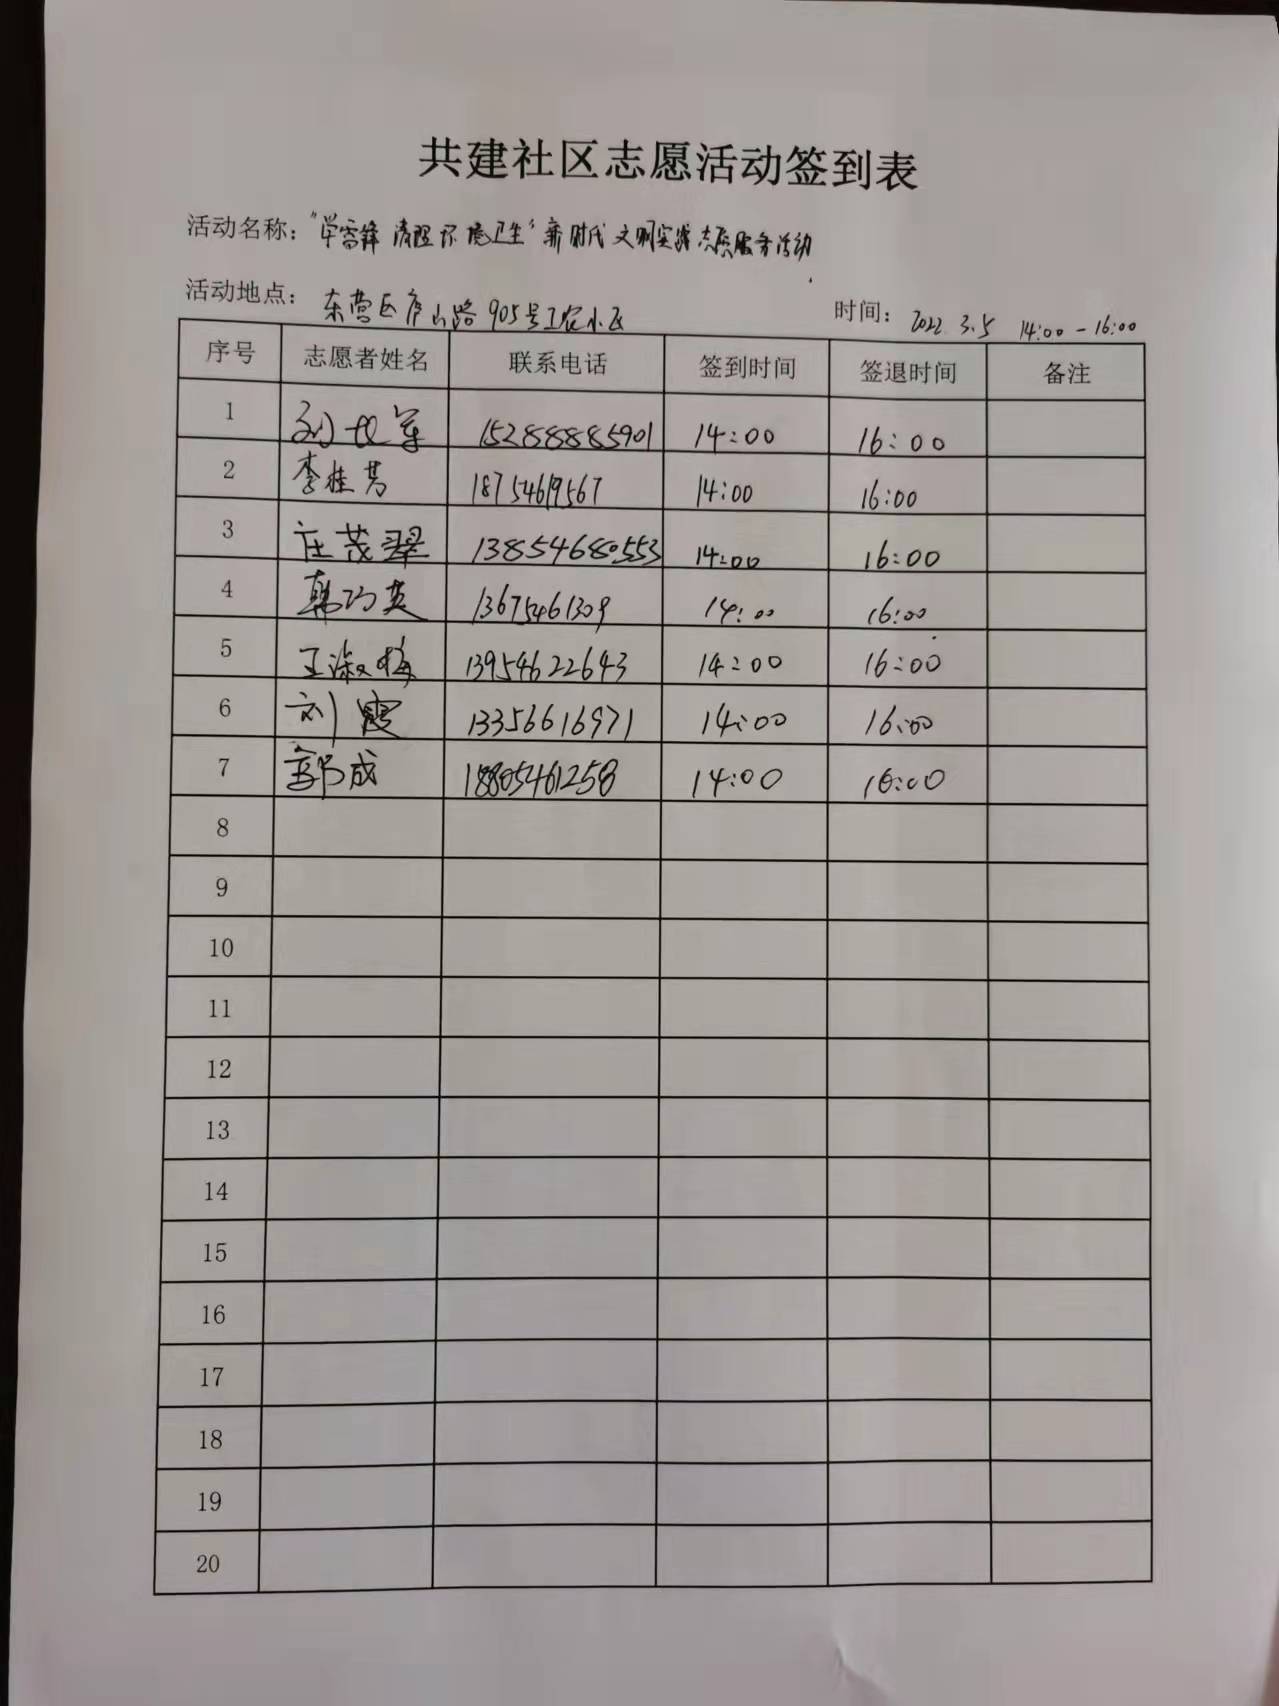 共建社区志愿活动签到表
活动名称："学雷锋 清理环境卫生"新时代文明实践志愿服务活动
活动地点：东营区庐山路905号工农小区 时间：2022.3.5 14:00-16:00
序号 志愿者姓名 联系电话 签到时间 签退时间 备注
1 刘 军 15288885901 14:00 16:00
2 李桂芳 18754619567 14:00 16:00
3 庄茂翠 13854680553 14:00 16:00
4 韩巧英 13675461309 14:00 16:00
5 王淑梅 13954622643 14:00 16:00
6 刘霞 13356616971 14:00 16:00
7 郭成 18805461258 14:00 16:00
8
9
10
11
12
13
14
15
16
17
18
19
20